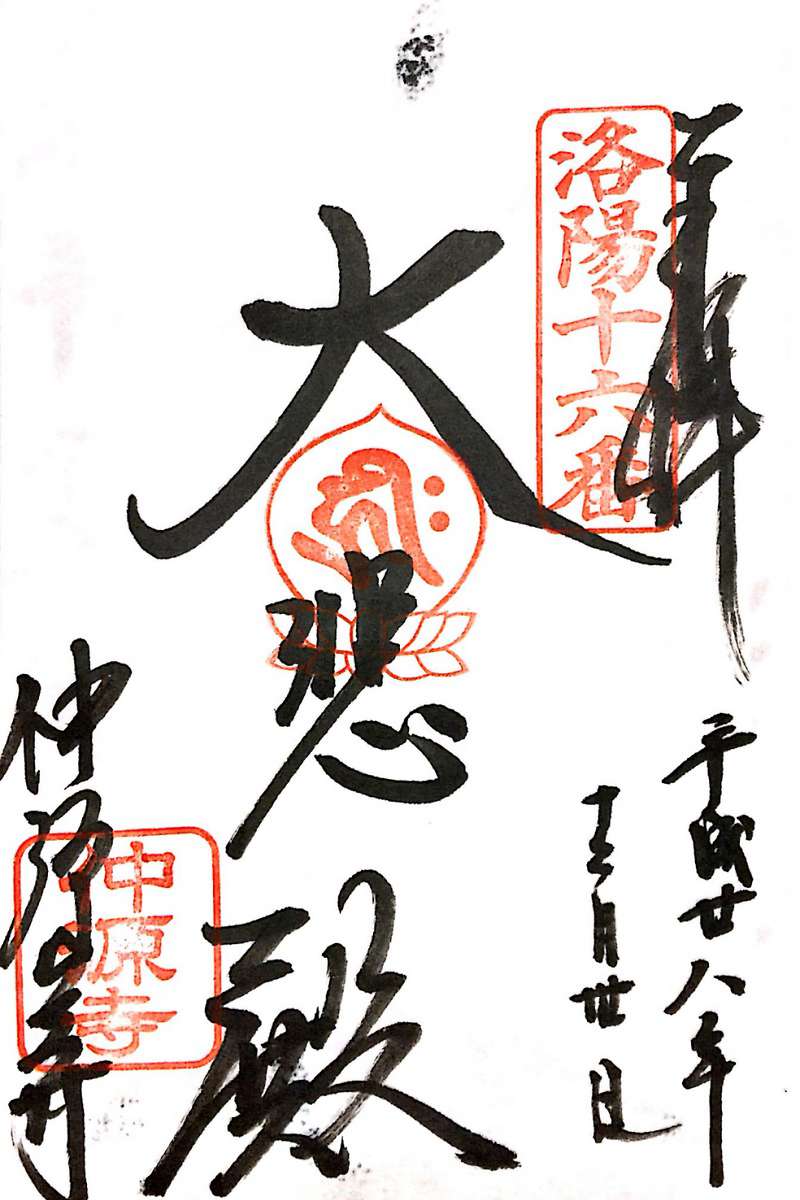 奉拝
洛陽十六番
平成廿八年
十二月丗日
大悲殿
仲源寺
仲源寺